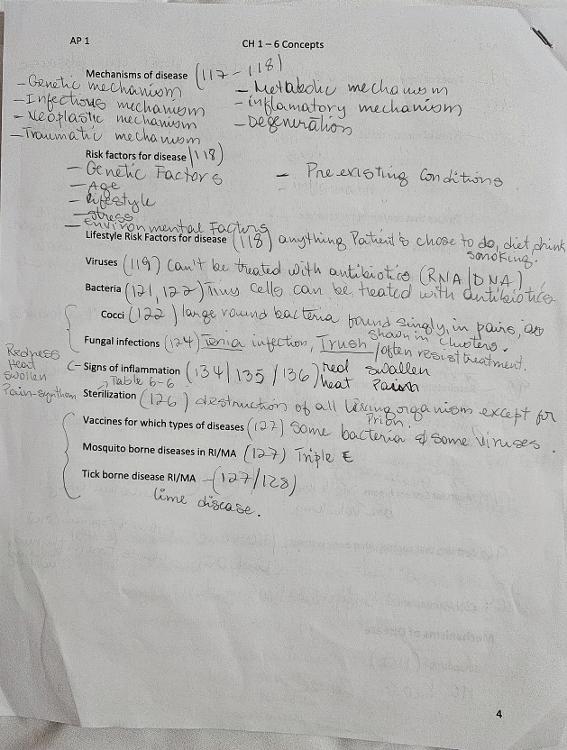 AP 1
CH 1 – 6 Concepts
Mechanisms of disease (117-118)
- Genetic mechanism
- Metabolic mechanism
- Infectious mechanism
- inflamatory mechanism
- Neoplastic mechanism
- Degeneration
- Traumatic mechanism
Risk factors for disease (118)
- Genetic Factors
- Pre existing Conditions
- Age
- lifestyle
- stress
- environmental Factors
Lifestyle Risk Factors for disease (118) anything Patient's chose to do, diet, drink
smoking.
Viruses (119) Can't be treated with antibiotics (RNA/DNA)
Bacteria (121, 122) Tiny cells can be treated with antibiotics
Cocci (122) large round bacteria found singly, in pairs,
shown in clusters.
Fungal infections (124) Tenia infection, Trush / often resist treatment.
Redness
Heat
Swollen
Pain
Signs of inflammation (134/135/136) red swollen
heat
Table 6-6
Sterilization (126) destruction of all living organism except for
Prion.
Vaccines for which types of diseases (127) Some bacteria & some viruses.
Mosquito borne diseases in RI/MA (127) Triple E
Tick borne disease RI/MA - (127/128)
lime disease.
4